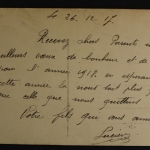 Le 26. 12. 17.
Recevez chers Parents m
meilleurs vœux de bonheur et de
pour l'année 1918, en espérant
cette année le sont tout plus
que celle que nous quittons
Votre fils qui vous aime
Lucien